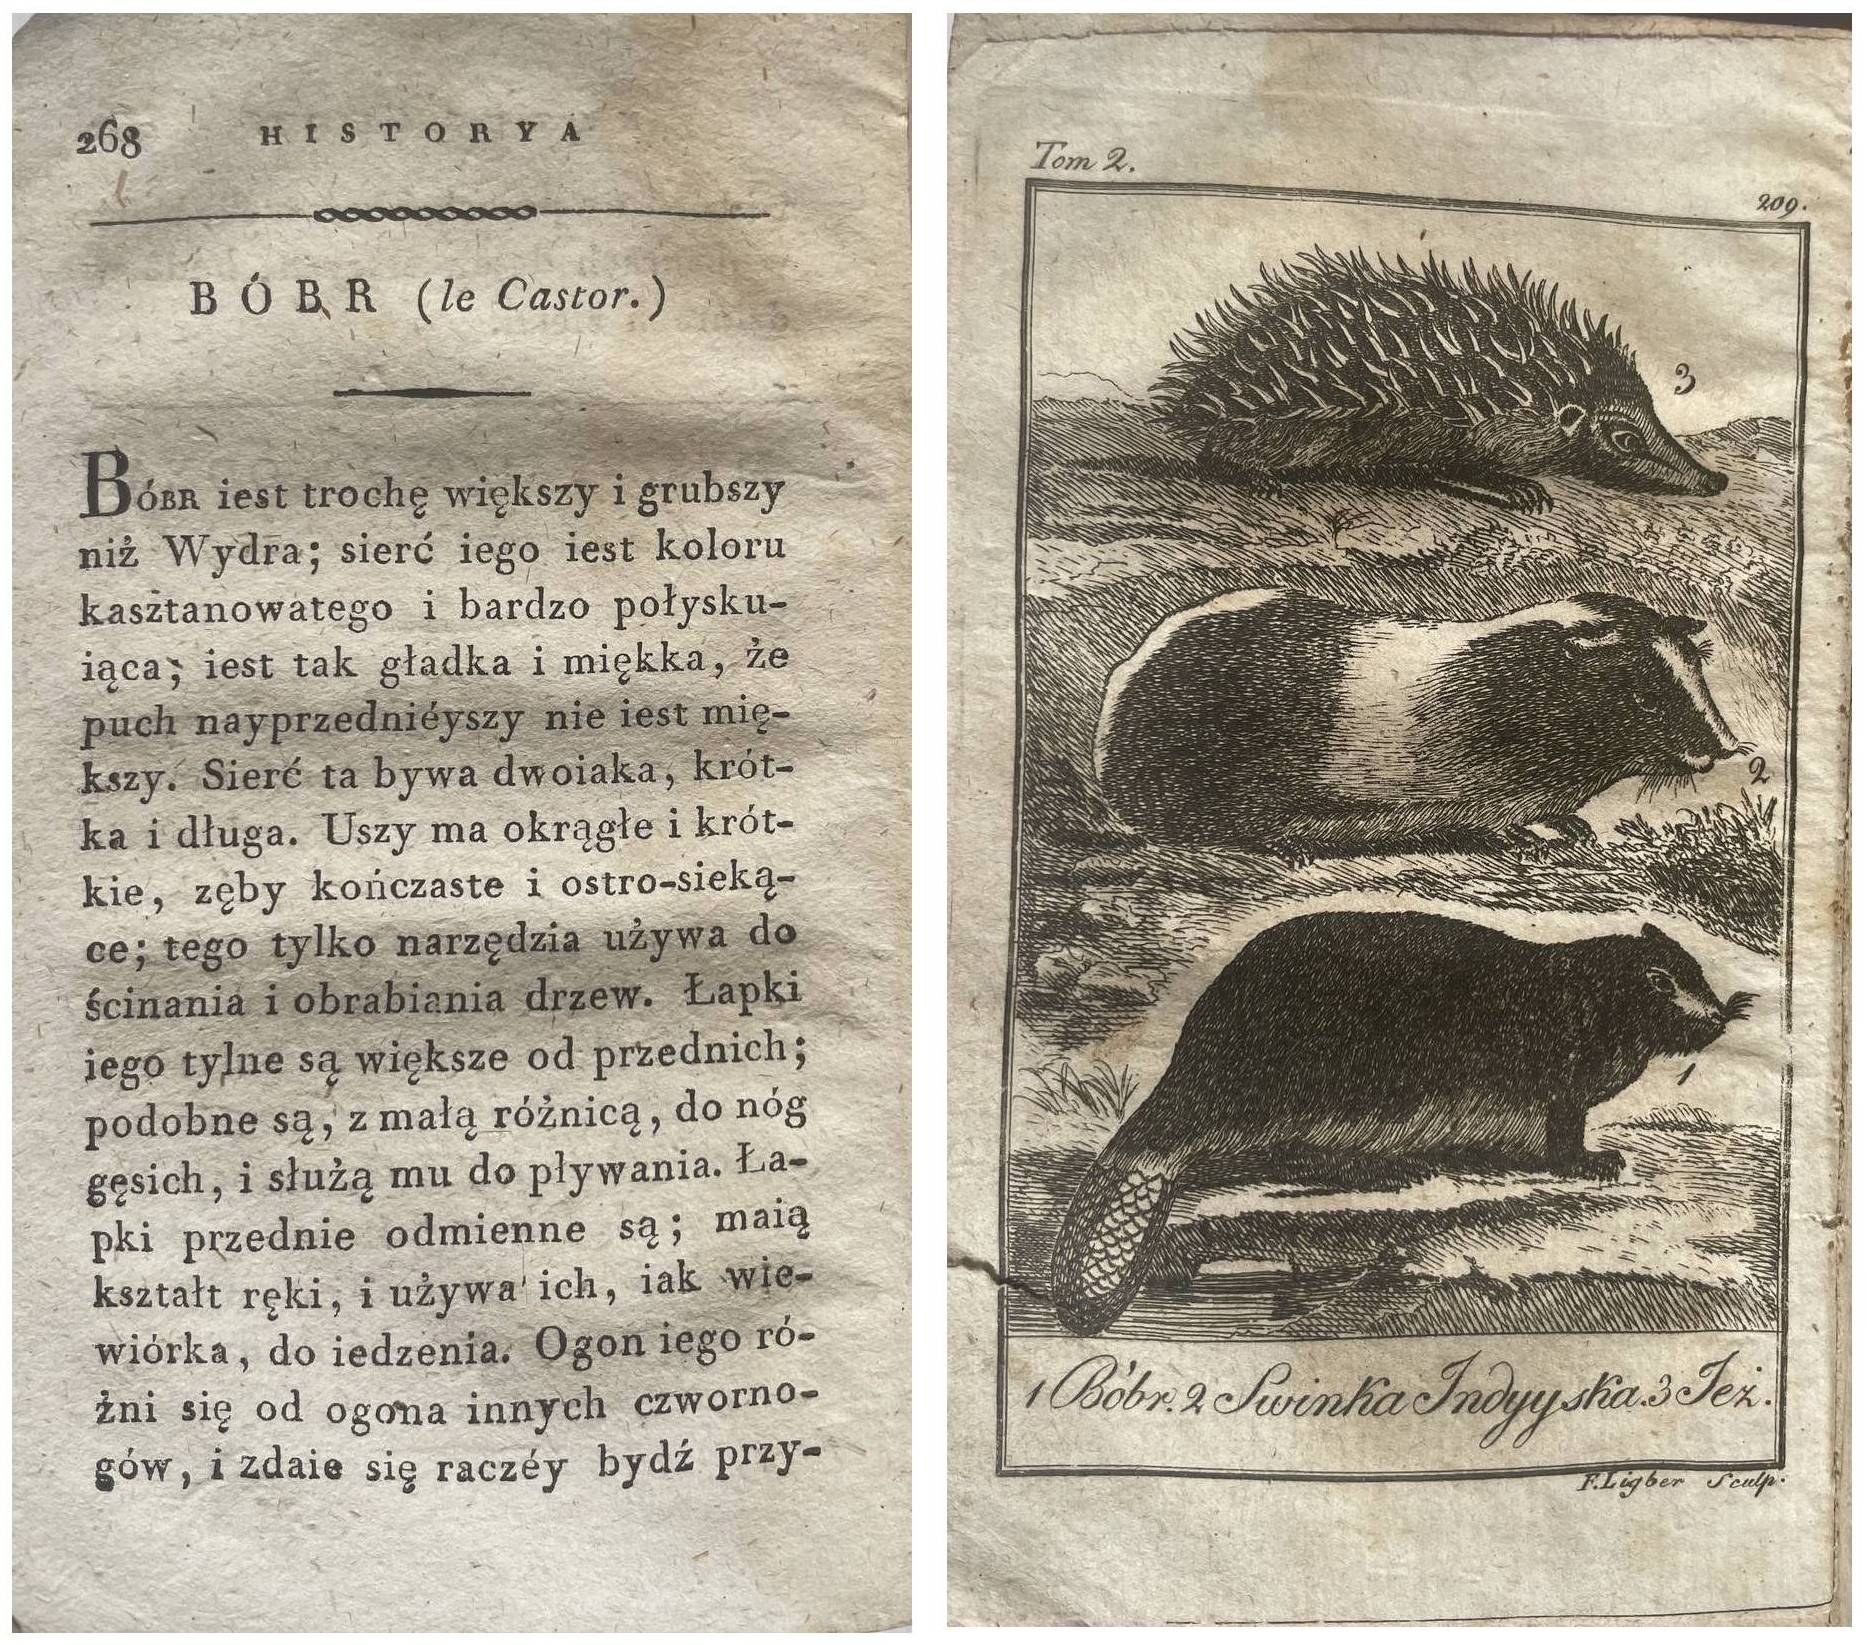 268 HISTORYA
BÓBR (le Castor.)
BÓBR iest trochę większy i grubszy
niż Wydra; sierć iego iest koloru
kasztanowatego i bardzo połysku-
iąca; iest tak gładka i miękka, że
puch nayprzedniéyszy nie iest mię-
kszy. Sierć ta bywa dwoiaka, krót-
ka i długa. Uszy ma okrągłe i krót-
kie, zęby kończaste i ostro-sieką-
ce; tego tylko narzędzia używa do
ścinania i obrabiania drzew. Łapki
iego tylne są większe od przednich;
podobne są, z małą różnicą, do nóg
gęsich, i służą mu do pływania. Ła-
pki przednie odmienne są; maią
kształt ręki, i używa ich, iak wie-
wiórka, do iedzenia. Ogon iego ró-
żni się od ogona innych czworno-
gów, i zdaie się raczéy bydź przy-
Tom 2.
209.
3
2
1
1 Bóbr. 2 Swinka Indyyska. 3 Jeż.
F. Ligber Sculp.